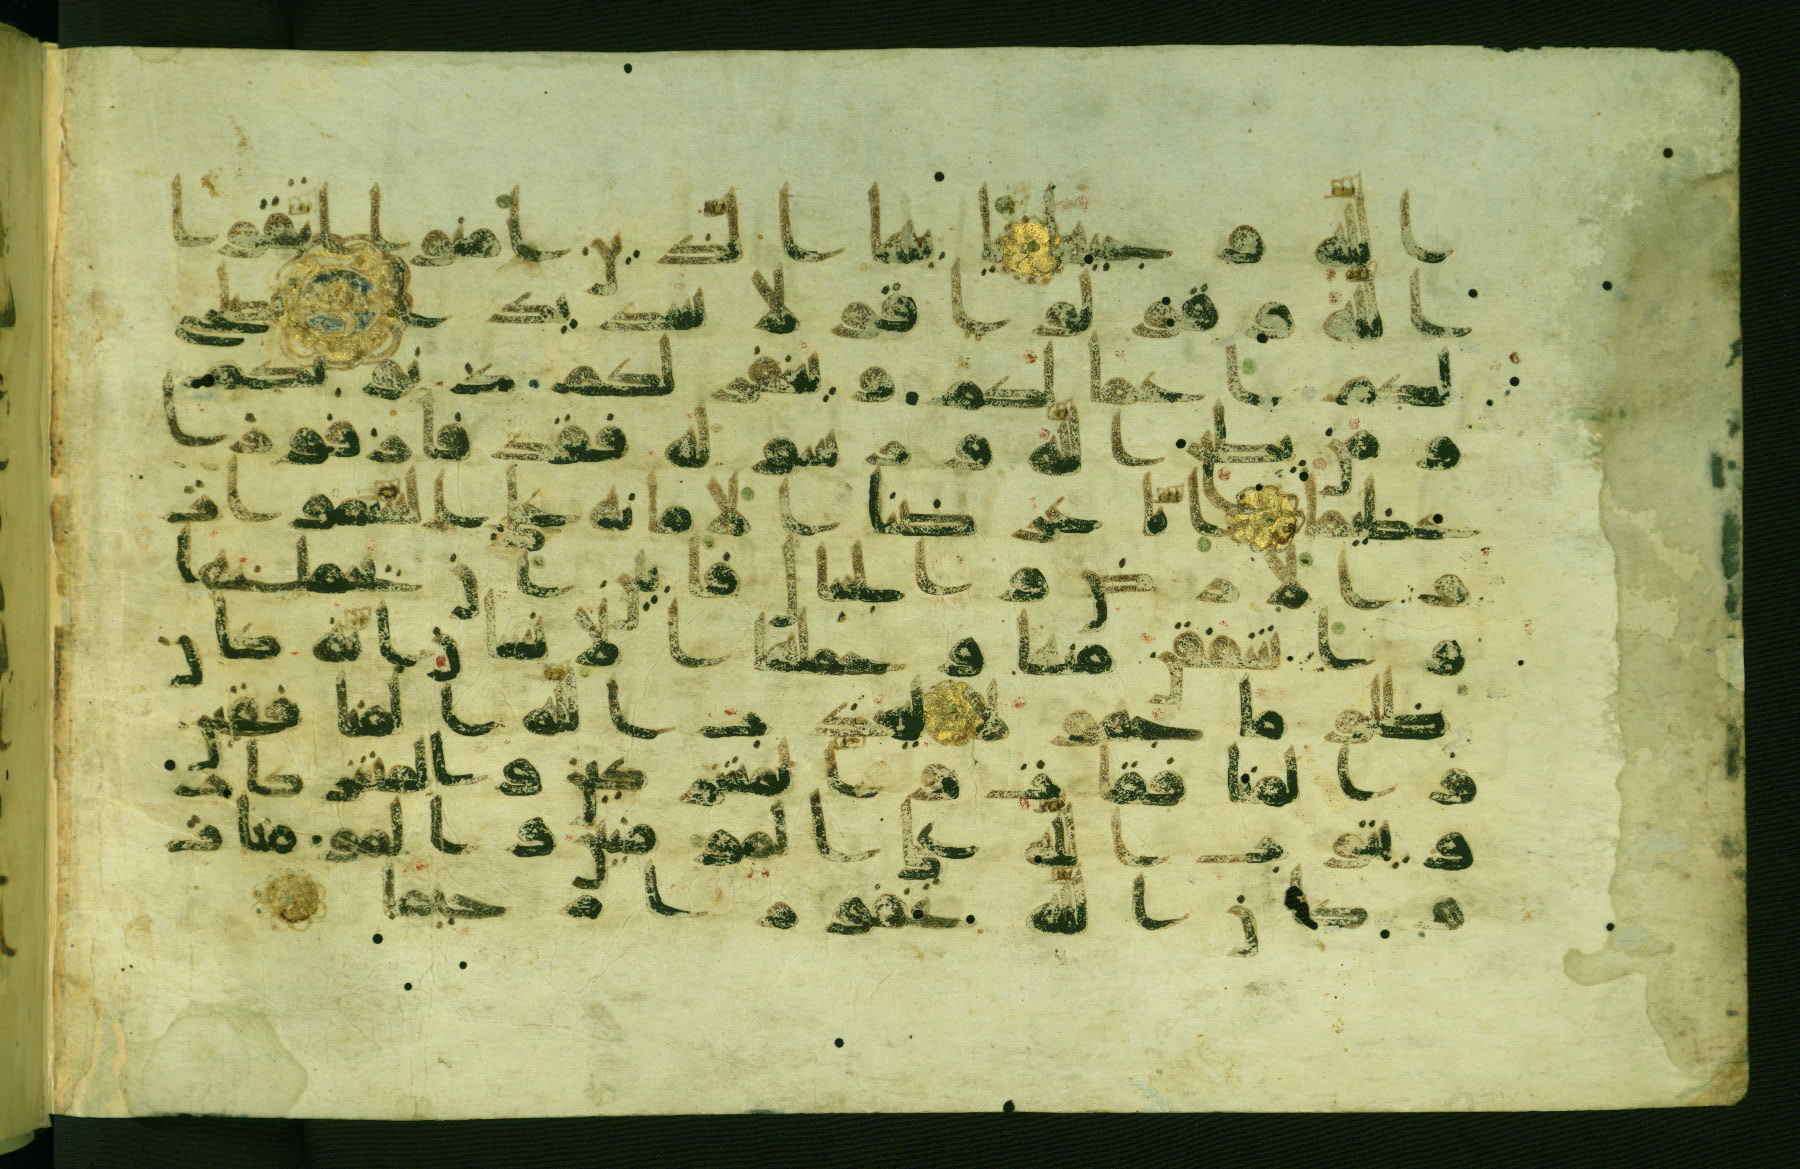 الله وجيها يايها الذين امنوا اتقوا
الله وقولوا قولا سديدا يصلح
لكم اعمالكم ويغفر لكم ذنوبكم
ومن يطع الله ورسوله فقد فاز فوزا
عظيما انا عرضنا الامانه على السموات
والارض والجبال فابين ان يحملنها
واشفقن منها وحملها الانسان انه كان
ظلوما جهولا ليعذب الله المنافقين
والمنافقات والمشركين والمشركات
ويتوب الله على المومنين والمومنات
وكان الله غفورا رحيما